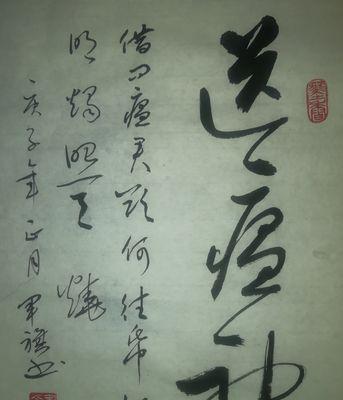 送瘟神
借问瘟君欲何往纸船
明烛照天烧
庚子年正月軍旗书